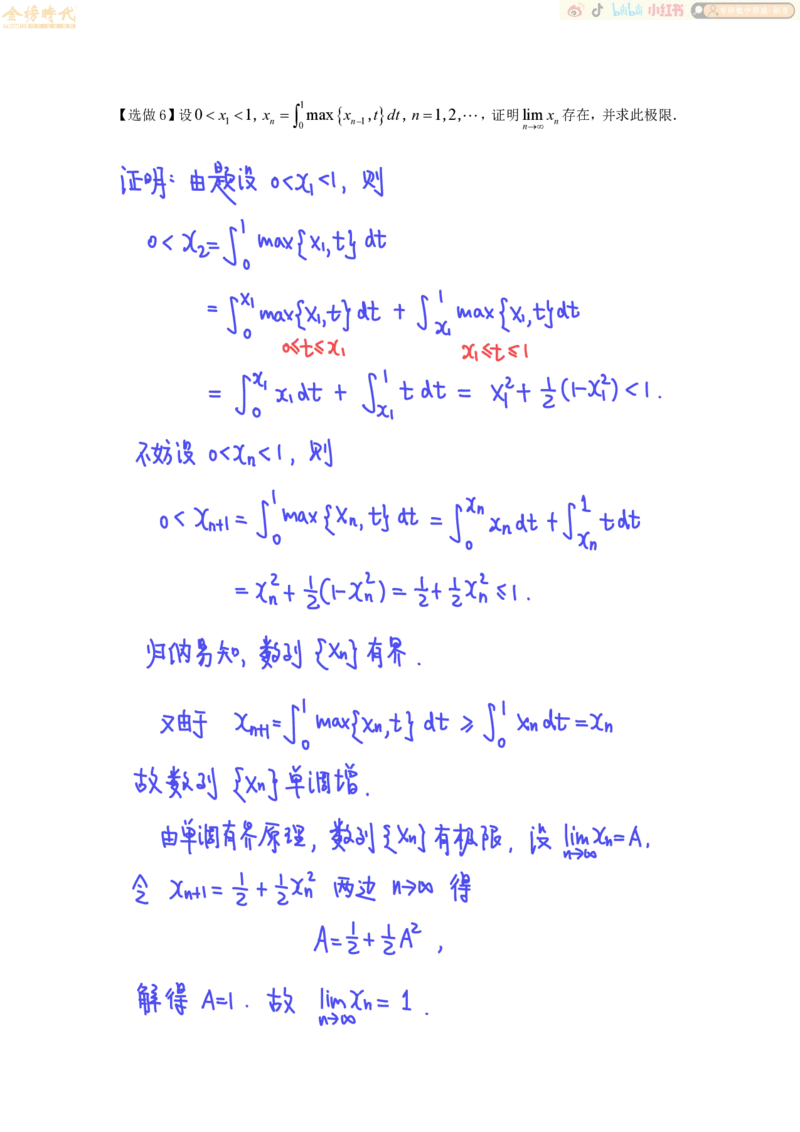 金榜時代
bilibili 小红书
【选做6】设0 < x₁ < 1, xₙ = ∫₀¹ max{xₙ₋₁,t}dt, n = 1,2,⋯, 证明lim_{n→∞} xₙ 存在, 并求此极限.
证明: 由题设 0<x₁<1, 则
0 < x₂ = ∫₀¹ max{x₁,t} dt
= ∫₀^{x₁} max{x₁,t} dt + ∫_{x₁}^1 max{x₁,t} dt
0≤t≤x₁ x₁≤t≤1
= ∫₀^{x₁} x₁dt + ∫_{x₁}^1 t dt = x₁² + ½(1-x₁²) < 1.
不妨设 0<xₙ<1, 则
0 < xₙ₊₁ = ∫₀¹ max{xₙ,t} dt = ∫₀^{xₙ} xₙ dt + ∫_{xₙ}^1 t dt
= xₙ² + ½(1-xₙ²) = ½ + ½xₙ² ≤ 1.
归纳易知, 数列 {xₙ} 有界.
又由于 xₙ₊₁ = ∫₀¹ max{xₙ,t} dt ≥ ∫₀¹ xₙ dt = xₙ
故数列 {xₙ} 单调增.
由单调有界原理, 数列{xₙ}有极限, 设 lim_{n→∞} xₙ = A,
令 xₙ₊₁ = ½ + ½xₙ² 两边 n→∞ 得
A = ½ + ½A² ,
解得 A=1. 故 lim_{n→∞} xₙ = 1 .